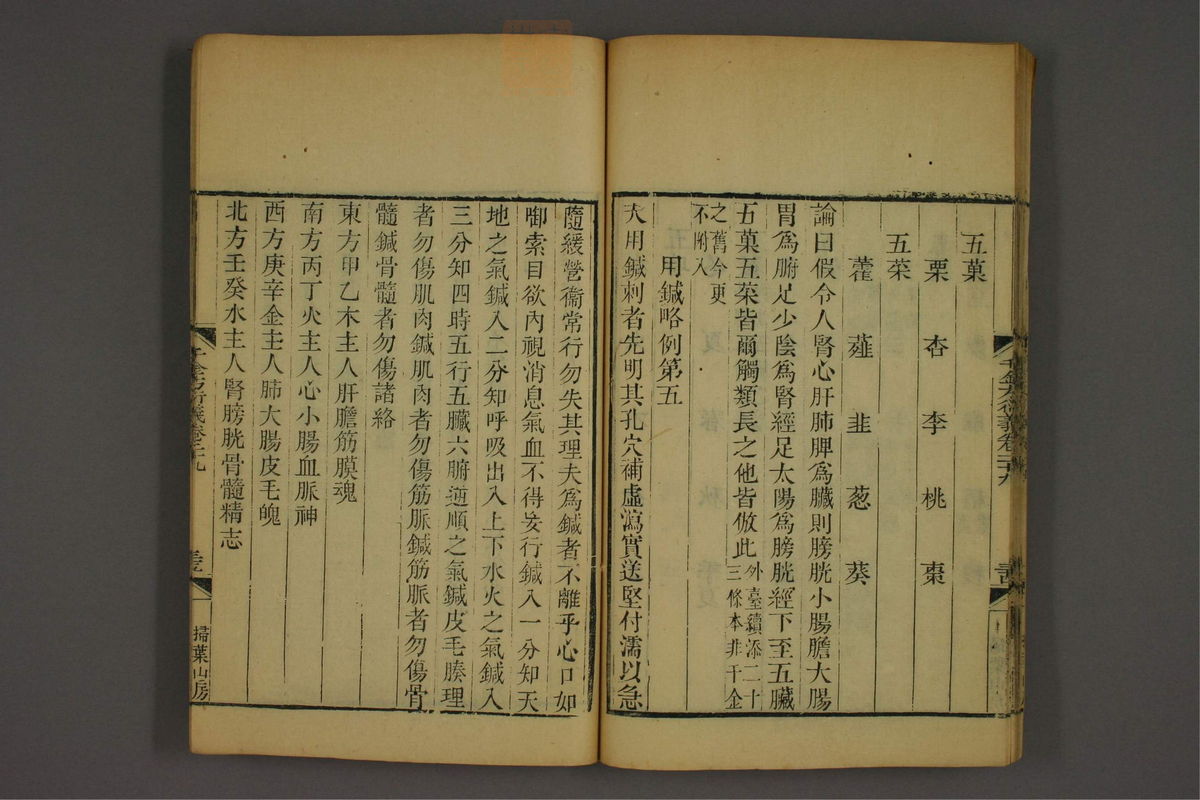 五菓
栗 杏 李 桃 棗
五菜
藿 薤 韭 葱 葵
論曰假令人腎心肝肺脾爲臟則膀胱小腸膽大腸
胃爲腑足少陰爲腎經足太陽爲膀胱經下至五臟
五菓五菜皆爾觸類長之他皆倣此外臺續添二十三條本非千金
之舊今更不附入
用鍼略例第五
夫用鍼刺者先明其孔穴補虛瀉實送堅付濡以急
千金方衍義卷二十九
隨緩營衞常行勿失其理夫爲鍼者不離乎心口如
啣索目欲內視消息氣血不得妄行鍼入一分知天
地之氣鍼入二分知呼吸出入上下水火之氣鍼入
三分知四時五行五臟六腑逆順之氣鍼皮毛腠理
者勿傷肌肉鍼肌肉者勿傷筋脈鍼筋脈者勿傷骨
髓鍼骨髓者勿傷諸絡
東方甲乙木主人肝膽筋膜魂
南方丙丁火主人心小腸血脈神
西方庚辛金主人肺大腸皮毛魄
北方壬癸水主人腎膀胱骨髓精志
千金方衍義卷二十九
掃葉山房